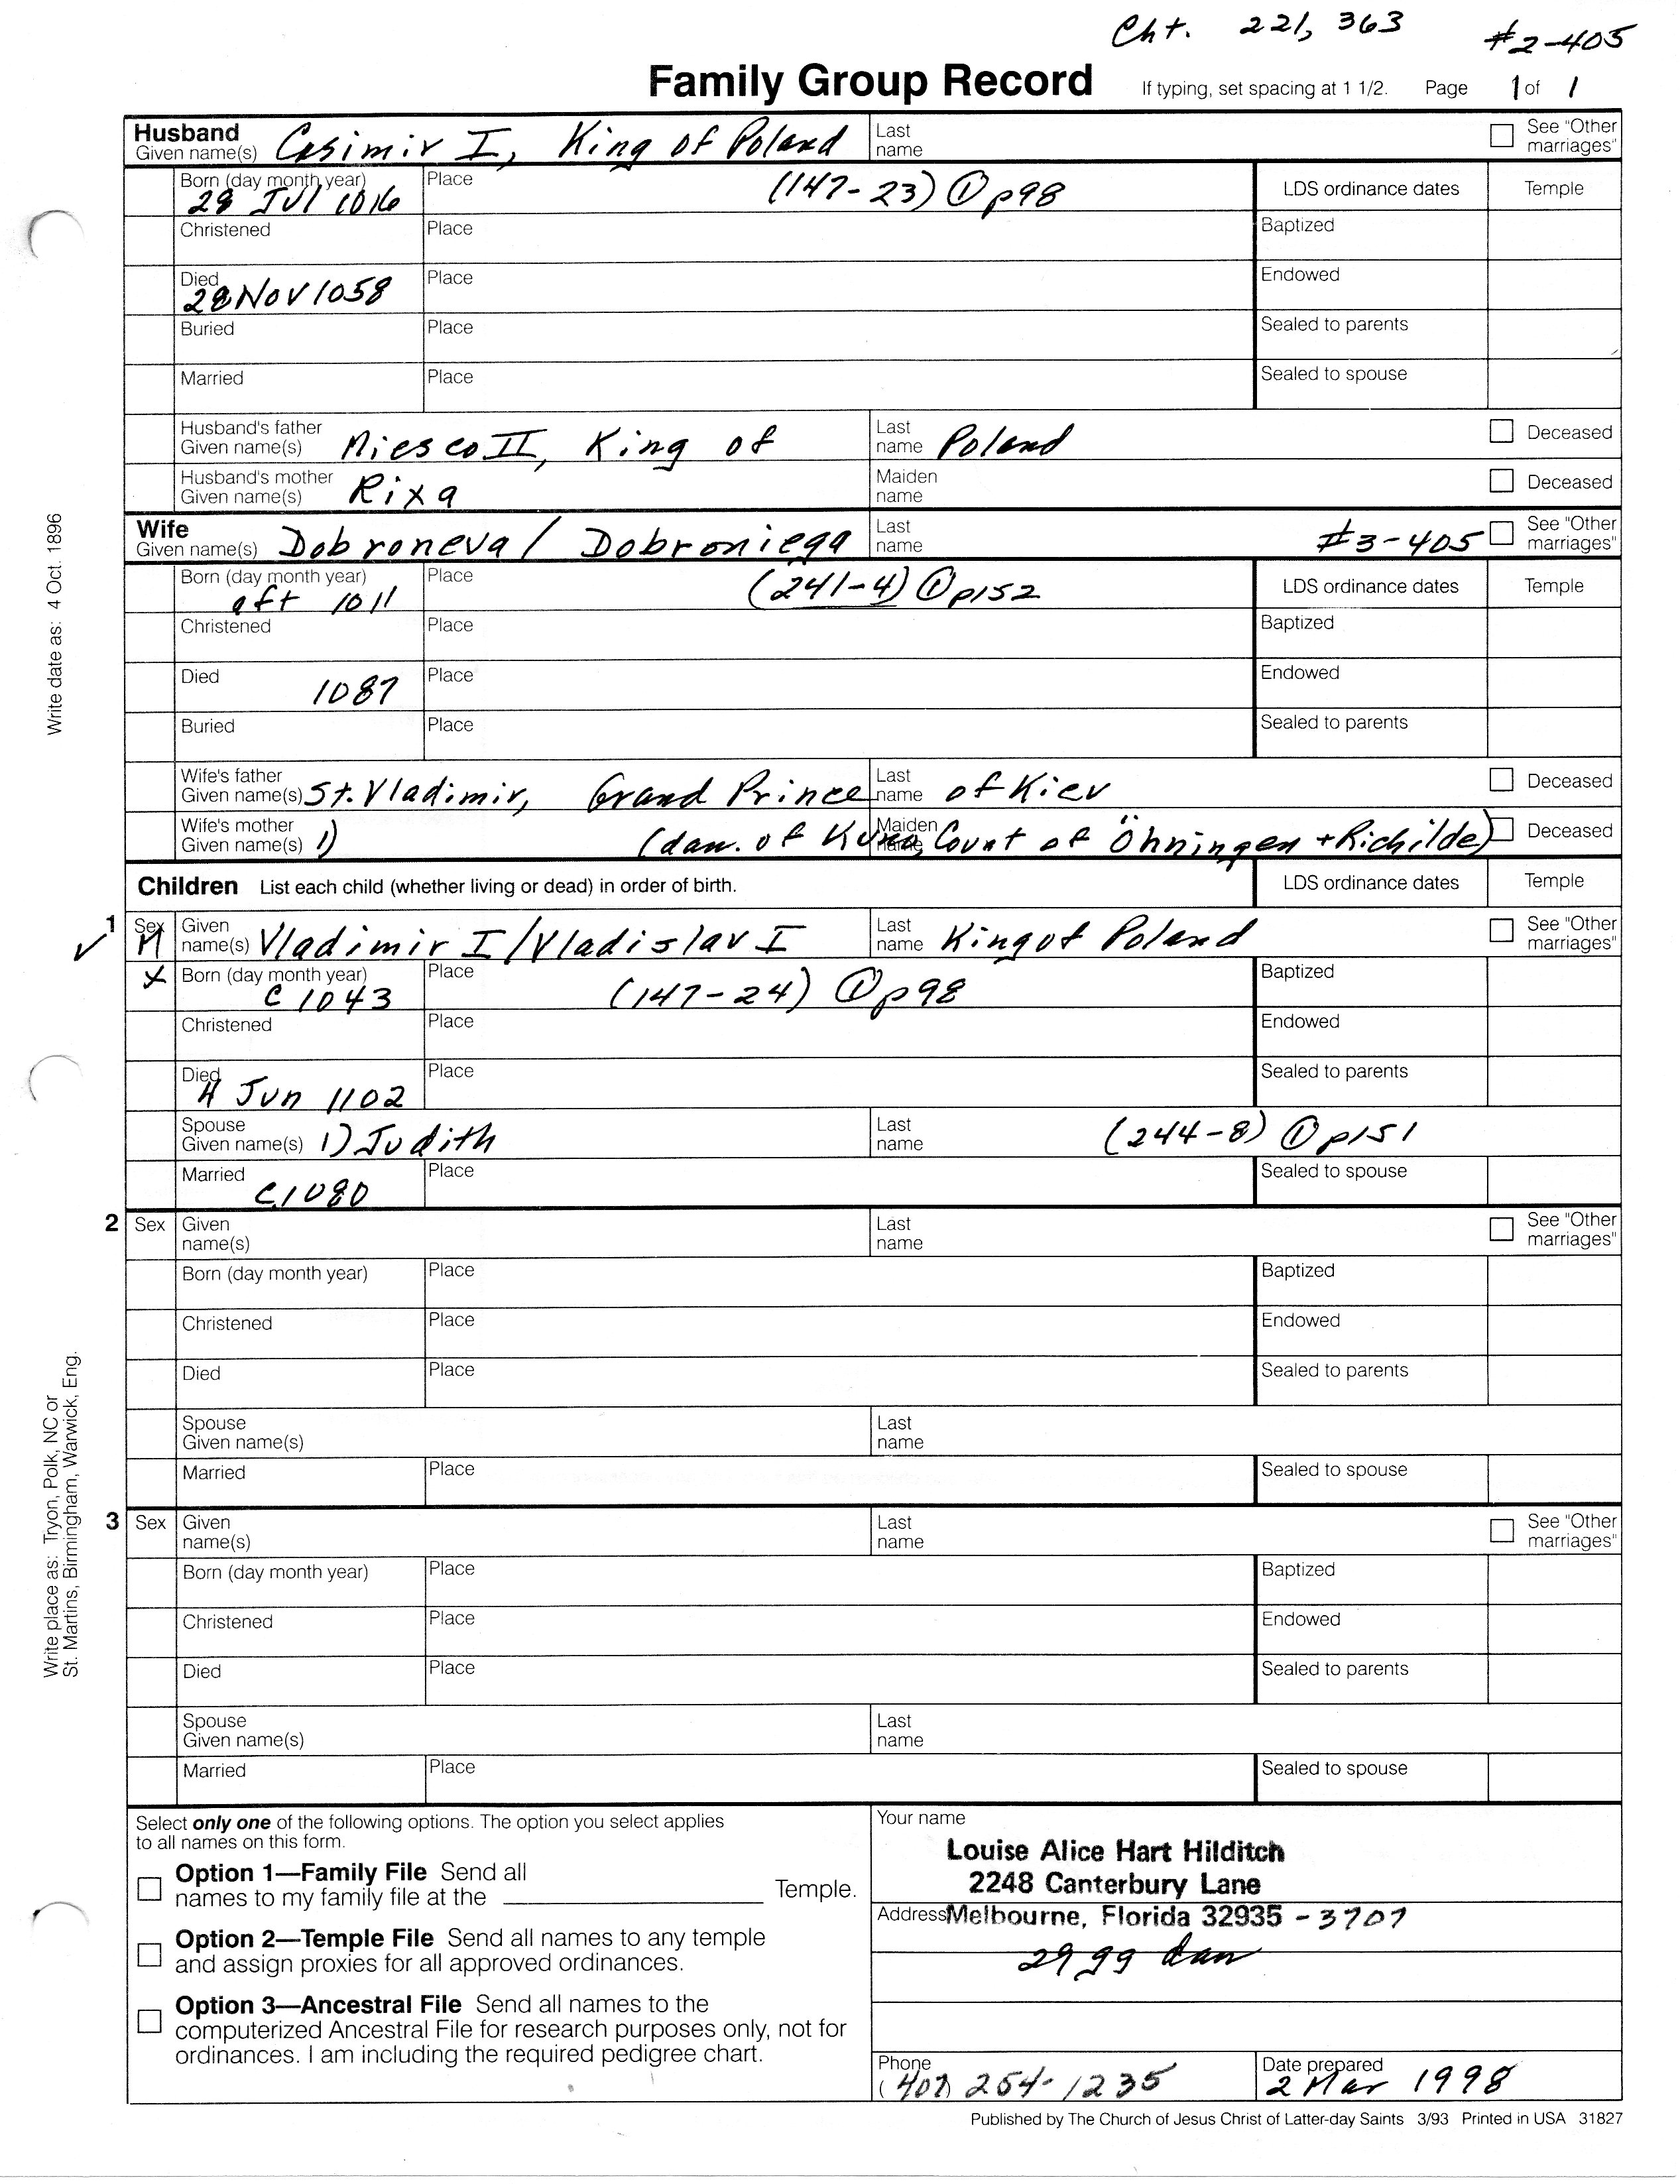 Cht. 221, 363 #2-405
Family Group Record If typing, set spacing at 1 1/2. Page 1 of 1
Husband
Given name(s) Casimir I, King of Poland Last name See "Other marriages"
Born (day month year) 28 Jul 1016 Place (147-23) ① p98 LDS ordinance dates Temple
Christened Place Baptized
Died 28 Nov 1058 Place Endowed
Buried Place Sealed to parents
Married Place Sealed to spouse
Husband's father Given name(s) Miesco II, King of Last name Poland Deceased
Husband's mother Given name(s) Rixa Maiden name Deceased
Wife
Given name(s) Dobroneva / Dobroniega Last name #3-405 See "Other marriages"
Born (day month year) aft 1011 Place (241-4) ① p152 LDS ordinance dates Temple
Christened Place Baptized
Died 1087 Place Endowed
Buried Place Sealed to parents
Wife's father Given name(s) St. Vladimir, Grand Prince Last name of Kiev Deceased
Wife's mother Given name(s) 1) (dau. of Kuno, Maiden name Count of Öhningen + Richilde) Deceased
Children List each child (whether living or dead) in order of birth. LDS ordinance dates Temple
1 ✓ Sex M Given name(s) Vladimir I/Vladislav I Last name King of Poland See "Other marriages"
X Born (day month year) C 1043 Place (147-24) ① p98 Baptized
Christened Place Endowed
Died 4 Jun 1102 Place Sealed to parents
Spouse Given name(s) 1) Judith Last name (244-8) ① p151
Married C.1080 Place Sealed to spouse
2 Sex Given name(s) Last name See "Other marriages"
Born (day month year) Place Baptized
Christened Place Endowed
Died Place Sealed to parents
Spouse Given name(s) Last name
Married Place Sealed to spouse
3 Sex Given name(s) Last name See "Other marriages"
Born (day month year) Place Baptized
Christened Place Endowed
Died Place Sealed to parents
Spouse Given name(s) Last name
Married Place Sealed to spouse
Select only one of the following options. The option you select applies
to all names on this form.
Option 1—Family File Send all
names to my family file at the Temple.
Option 2—Temple File Send all names to any temple
and assign proxies for all approved ordinances.
Option 3—Ancestral File Send all names to the
computerized Ancestral File for research purposes only, not for
ordinances. I am including the required pedigree chart.
Your name
Louise Alice Hart Hilditch
2248 Canterbury Lane
Address Melbourne, Florida 32935 - 3707
29 gg dau
Phone (407) 254-1235 Date prepared 2 Mar 1998
Published by The Church of Jesus Christ of Latter-day Saints 3/93 Printed in USA 31827
Write date as: 4 Oct. 1896
Write place as: Tryon, Polk, NC or
St. Martins, Birmingham, Warwick, Eng.